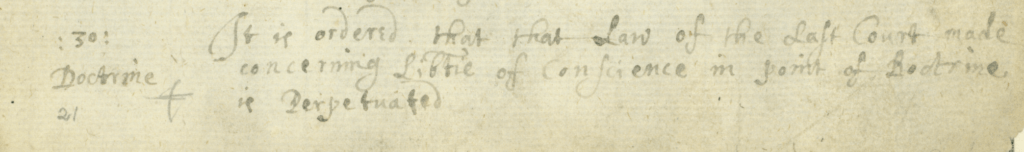 : 30 :
Doctrine
21
It is ordered that that Law of the Last Court made
concerning Libtie of Conscience in point of Doctrine
is Perpetuated